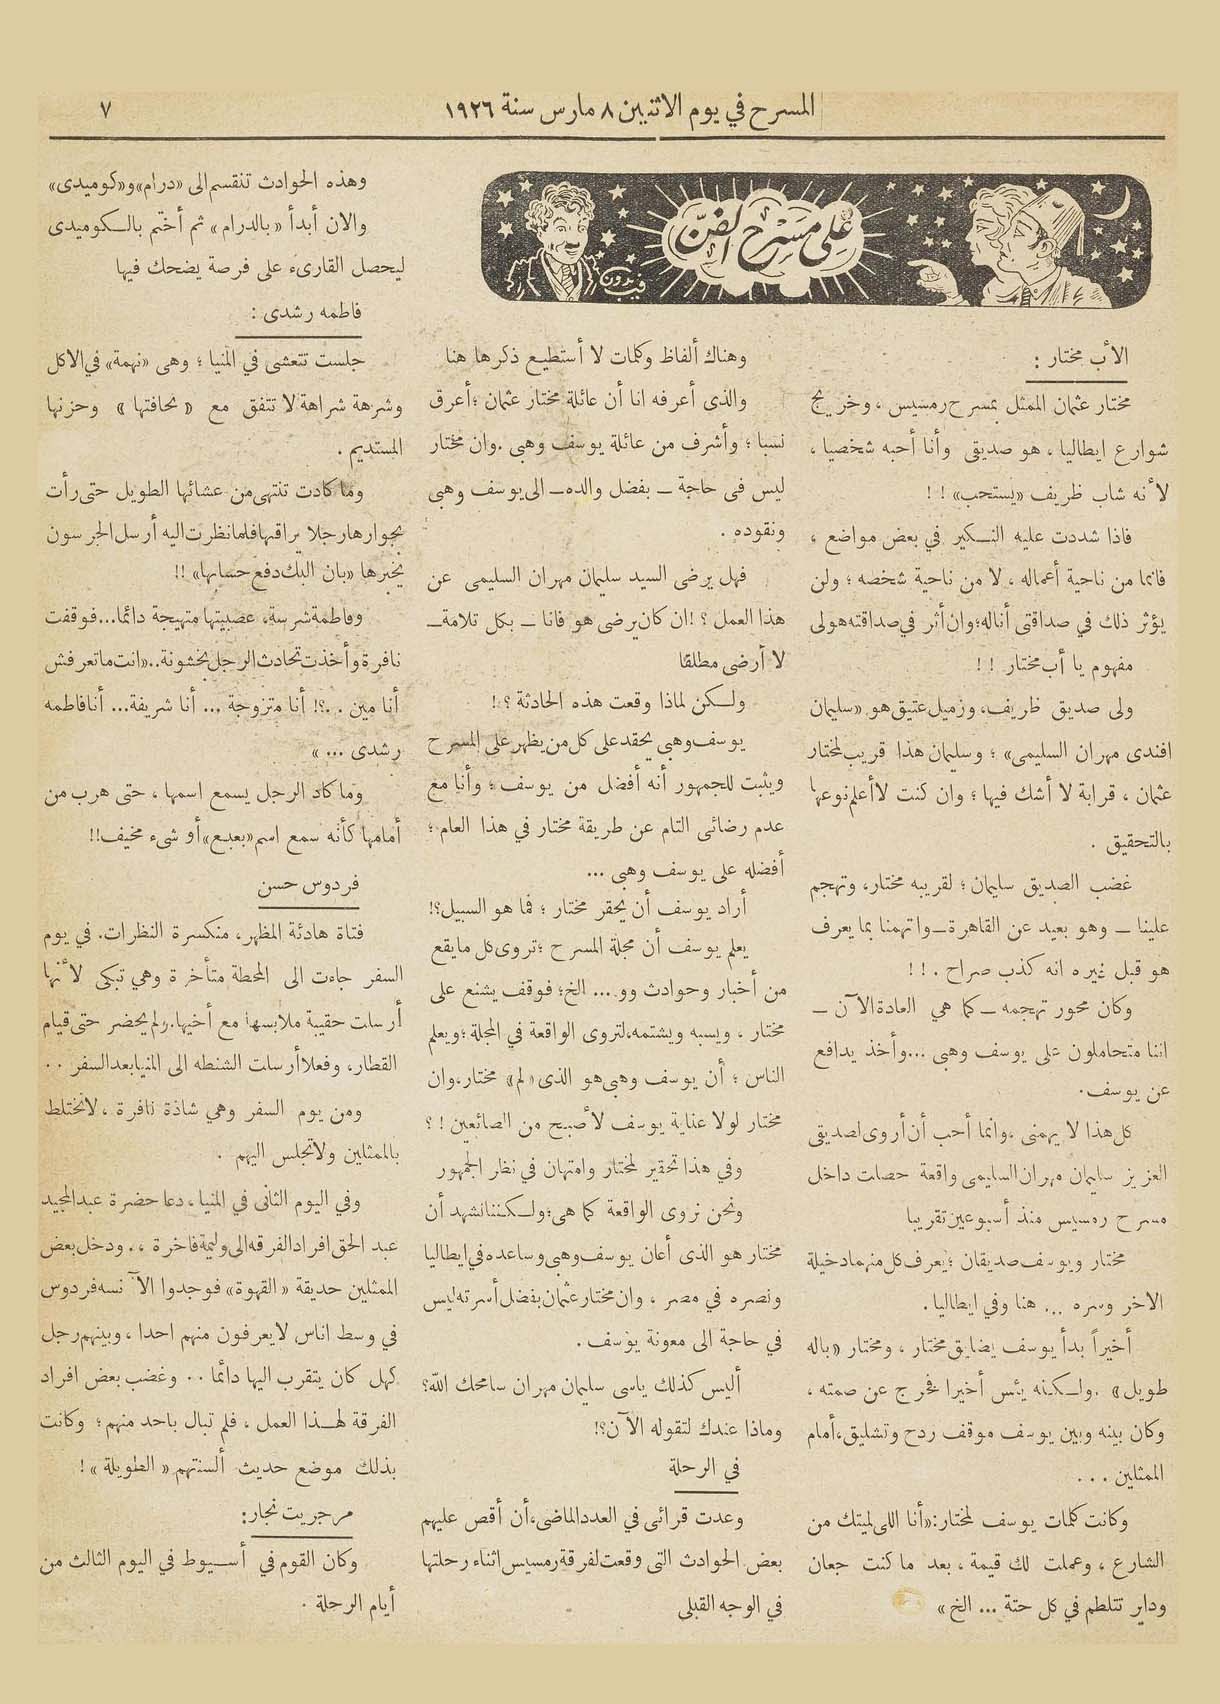 المسرح في يوم الاثنين ٨ مارس سنة ١٩٢٦
٧
على مسرح الفن
الأب مختار :
مختار عثمان الممثل بمسرح رمسيس ، وخريج
شوارع ايطاليا ، هو صديقى وأنا أحبه شخصيا ،
لأنه شاب ظريف «يستحب» ! !
فاذا شددت عليه النكير في بعض مواضع ،
فانما من ناحية أعماله ، لا من ناحية شخصه ؛ ولن
يؤثر ذلك في صداقتى أناله ؛ وان أثر في صداقته هولى
مفهوم يا أب مختار ! !
ولى صديق ظريف ، وزميل عتيق هو «سليمان
افندى مهران السليمى» ؛ وسليمان هذا قريب لمختار
عثمان ، قرابة لا أشك فيها ؛ وان كنت لا أعلم نوعها
بالتحقيق .
غضب الصديق سليمان ؛ لقريبه مختار ، وتهجم
علينا ــ وهو بعيد عن القاهرة ــ واتهمنا بما يعرف
هو قبل غيره انه كذب صراح . ! !
وكان محور تهجمه ــ كما هي العادة الآن ــ
اننا متحاملون على يوسف وهبى ... وأخذ يدافع
عن يوسف .
كل هذا لا يهمنى ، وانما أحب أن أروى لصديقى
العزيز سليمان مهران السليمى واقعة حصلت داخل
مسرح رمسيس منذ أسبوعين تقريبا
مختار ويوسف صديقان ؛ يعرف كل منهما دخيلة
الاخر وسره ... هنا وفي ايطاليا .
أخيراً بدأ يوسف يضايق مختار ، ومختار «باله
طويل» . ولكنه يئس أخيرا فخرج عن صمته ،
وكان بينه وبين يوسف موقف ردح وتشليق ، أمام
الممثلين . . .
وكانت كلمات يوسف لمختار : «أنا اللى لميتك من
الشارع ، وعملت لك قيمة ، بعد ما كنت جعان
وداير تتلطم في كل حتة ... الخ »
وهناك ألفاظ وكلمات لا أستطيع ذكرها هنا
والذى أعرفه انا أن عائلة مختار عثمان ؛ أعرق
نسبا ؛ وأشرف من عائلة يوسف وهبى . وان مختار
ليس فى حاجة ــ بفضل والده ــ الى يوسف وهبى
ونقوده .
فهل يرضى السيد سليمان مهران السليمى عن
هذا العمل ؟ ! ان كان يرضى هو فانا ــ بكل تلامة ــ
لا أرضى مطلقا
ولكن لماذا وقعت هذه الحادثة ؟ !
يوسف وهبي يحقد على كل من يظهر على المسرح
ويثبت للجمهور أنه أفضل من يوسف ؛ وأنا مع
عدم رضائى التام عن طريقة مختار في هذا العام ؛
أفضله على يوسف وهبى ...
أراد يوسف أن يحقر مختار ؛ فما هو السبيل؟!
يعلم يوسف أن مجلة المسرح ؛ تروى كل ما يقع
من أخبار وحوادث وو ... الخ ؛ فوقف يشنع على
مختار ، ويسبه ويشتمه ، لتروى الواقعة في المجلة ؛ ويعلم
الناس ؛ أن يوسف وهبى هو الذى «لم» مختار ، وان
مختار لولا عناية يوسف لأصبح من الصائعين ! ؟
وفي هذا تحقير لمختار وامتهان في نظر الجمهور
ونحن نروى الواقعة كما هى ؛ ولكننا نشهد أن
مختار هو الذى أعان يوسف وهبى وساعده في ايطاليا
ونصره في مصر ، وان مختار عثمان بفضل أسرته ليس
في حاجة الى معونة يوسف .
أليس كذلك ياسى سليمان مهران سامحك الله؟
وماذا عندك لتقوله الآن؟!
في الرحلة
وعدت قرائى في العدد الماضى ، أن أقص عليهم
بعض الحوادث التى وقعت لفرقة رمسيس اثناء رحلتها
في الوجه القبلى
وهذه الحوادث تنقسم الى «درام» و«كوميدى»
والان أبدأ «بالدرام» ثم أختم بالكوميدى
ليحصل القارىء على فرصة يضحك فيها
فاطمه رشدى :
جلست تتعشى في المنيا ؛ وهى «نهمة» في الاكل
وشرهة شراهة لا تتفق مع «نحافتها» وحزنها
المستديم .
وما كادت تنتهى من عشائها الطويل حتى رأت
بجوارها رجلا يراقبها فلما نظرت اليه أرسل الجرسون
يخبرها «بان البك دفع حسابها» !!
وفاطمة شرسة ، عصبيتها متهيجة دائما ... فوقفت
نافرة وأخذت تحادث الرجل بخشونة .. «انت ما تعرفش
أنا مين . . ؟! أنا متزوجة ... أنا شريفة ... أنا فاطمه
رشدى ... »
وما كاد الرجل يسمع اسمها ، حتى هرب من
أمامها كأنه سمع اسم «بعبع» أو شىء مخيف!!
فردوس حسن
فتاة هادئة المظهر ، منكسرة النظرات . في يوم
السفر جاءت الى المحطة متأخرة وهي تبكى لأنها
أرسلت حقيبة ملابسها مع أخيها . ولم يحضر حتى قيام
القطار ، وفعلا أرسلت الشنطه الى المنيا بعد السفر . .
ومن يوم السفر وهي شاذة نافرة ، لا تختلط
بالممثلين ولا تجلس اليهم .
وفي اليوم الثانى في المنيا ، دعا حضرة عبد المجيد
عبد الحق افراد الفرقه الى وليمة فاخرة . . ودخل بعض
الممثلين حديقة «القهوة» فوجدوا الآنسه فردوس
في وسط اناس لا يعرفون منهم احدا ، وبينهم رجل
كهل كان يتقرب اليها دائما . . وغضب بعض افراد
الفرقة لهذا العمل ، فلم تبال باحد منهم ؛ وكانت
بذلك موضع حديث ألسنتهم «الطويلة» !
مرجريت نجار :
وكان القوم في أسيوط في اليوم الثالث من
أيام الرحلة .